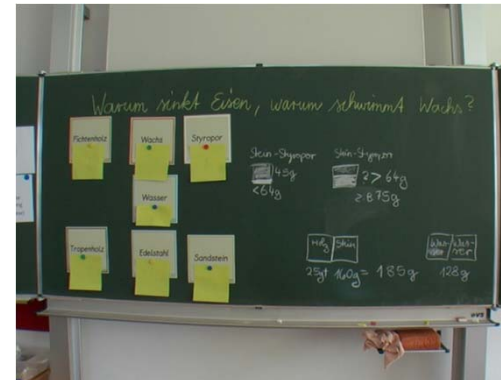 Warum sinkt Eisen, warum schwimmt Wachs?
Fichtenholz
Wachs
Styropor
Wasser
Tropenholz
Edelstahl
Sandstein
Stein-Styropor
45g
<64g
Stein-Styropor
? > 64g
Holz Stein
25g+ 160g = 185g
Was- Was-
ser
128g